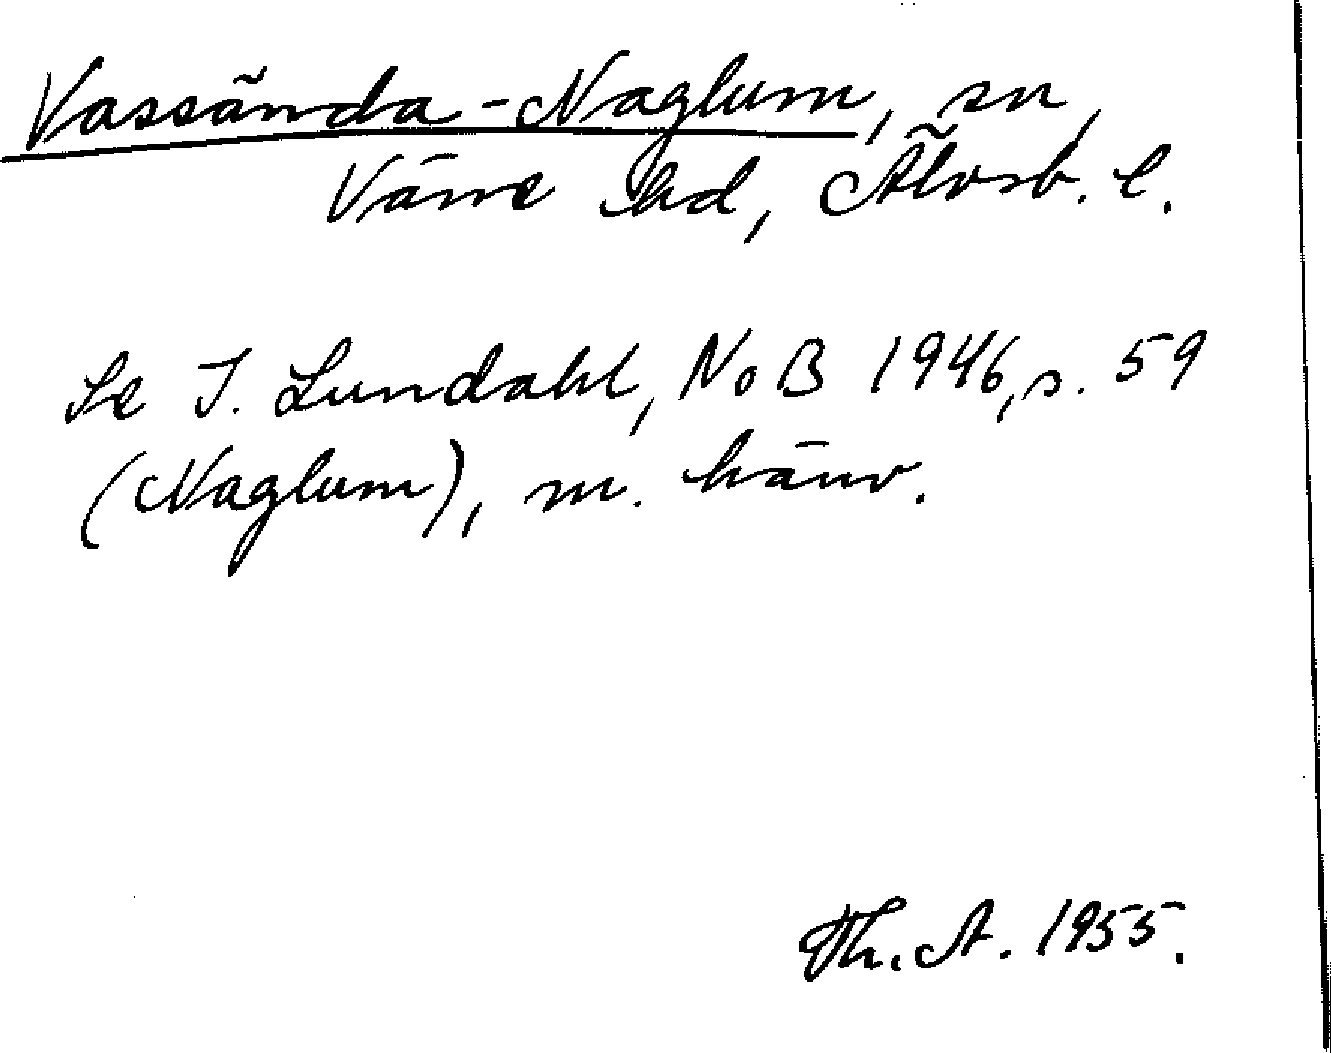 Vassända-Naglum, sn,
Väne hd, Älvsb. l.
Se I. Lundahl, NoB 1946, s. 59
(Naglum), m. hänv.
Th. A. 1955.